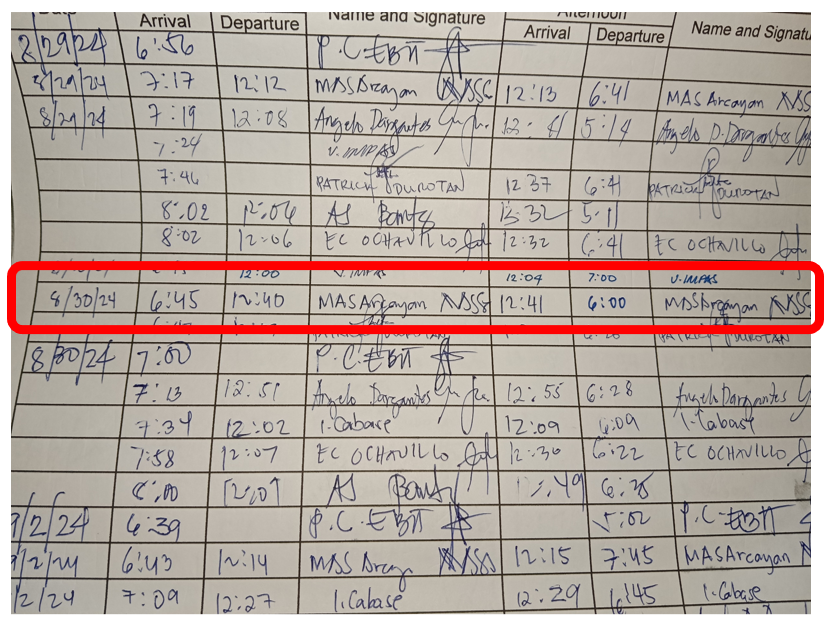 Arrival Departure Name and Signature Afternoon Arrival Departure Name and Signatu
8/29/24 6:56 P.C. EBIT
8/29/24 7:17 12:12 MASArcayan 12:13 6:41 MASArcayan
8/29/24 7:19 12:08 Angelo Dargantes 5:14 Angelo D. Dargantes
7:24 V. IMPAS
7:46 PATRICK DUROTAN 12 37 6:41 PATRICK DUROTAN
8:02 12:06 AS 12:32 5:11
8:02 12:06 EC OCHAVILLO 12:32 6:41 EC OCHAVILLO
12:00 V. IMPAS 12:04 7:00 V. IMPAS
8/30/24 6:45 12:40 MASArcayan 12:41 6:00 MASArcayan
PATRICK DUROTAN PATRICK DUROTAN
8/30/24 7:00 P.C. EBIT
7:13 12:51 Angelo Dargantes 12:55 6:28 Angelo Dargantes
7:34 12:02 I. Cabase 12:09 6:09 I. Cabase
7:58 12:07 EC OCHAVILLO 12:30 6:22 EC OCHAVILLO
8:00 12:07 AS 6:28
9/2/24 6:39 P.C. EBIT 5:02 P.C. EBIT
9/2/24 6:43 12:14 MAS 12:15 7:45 MASArcayan
2/24 7:09 12:27 I. Cabase 12:29 6:45 I. Cabase